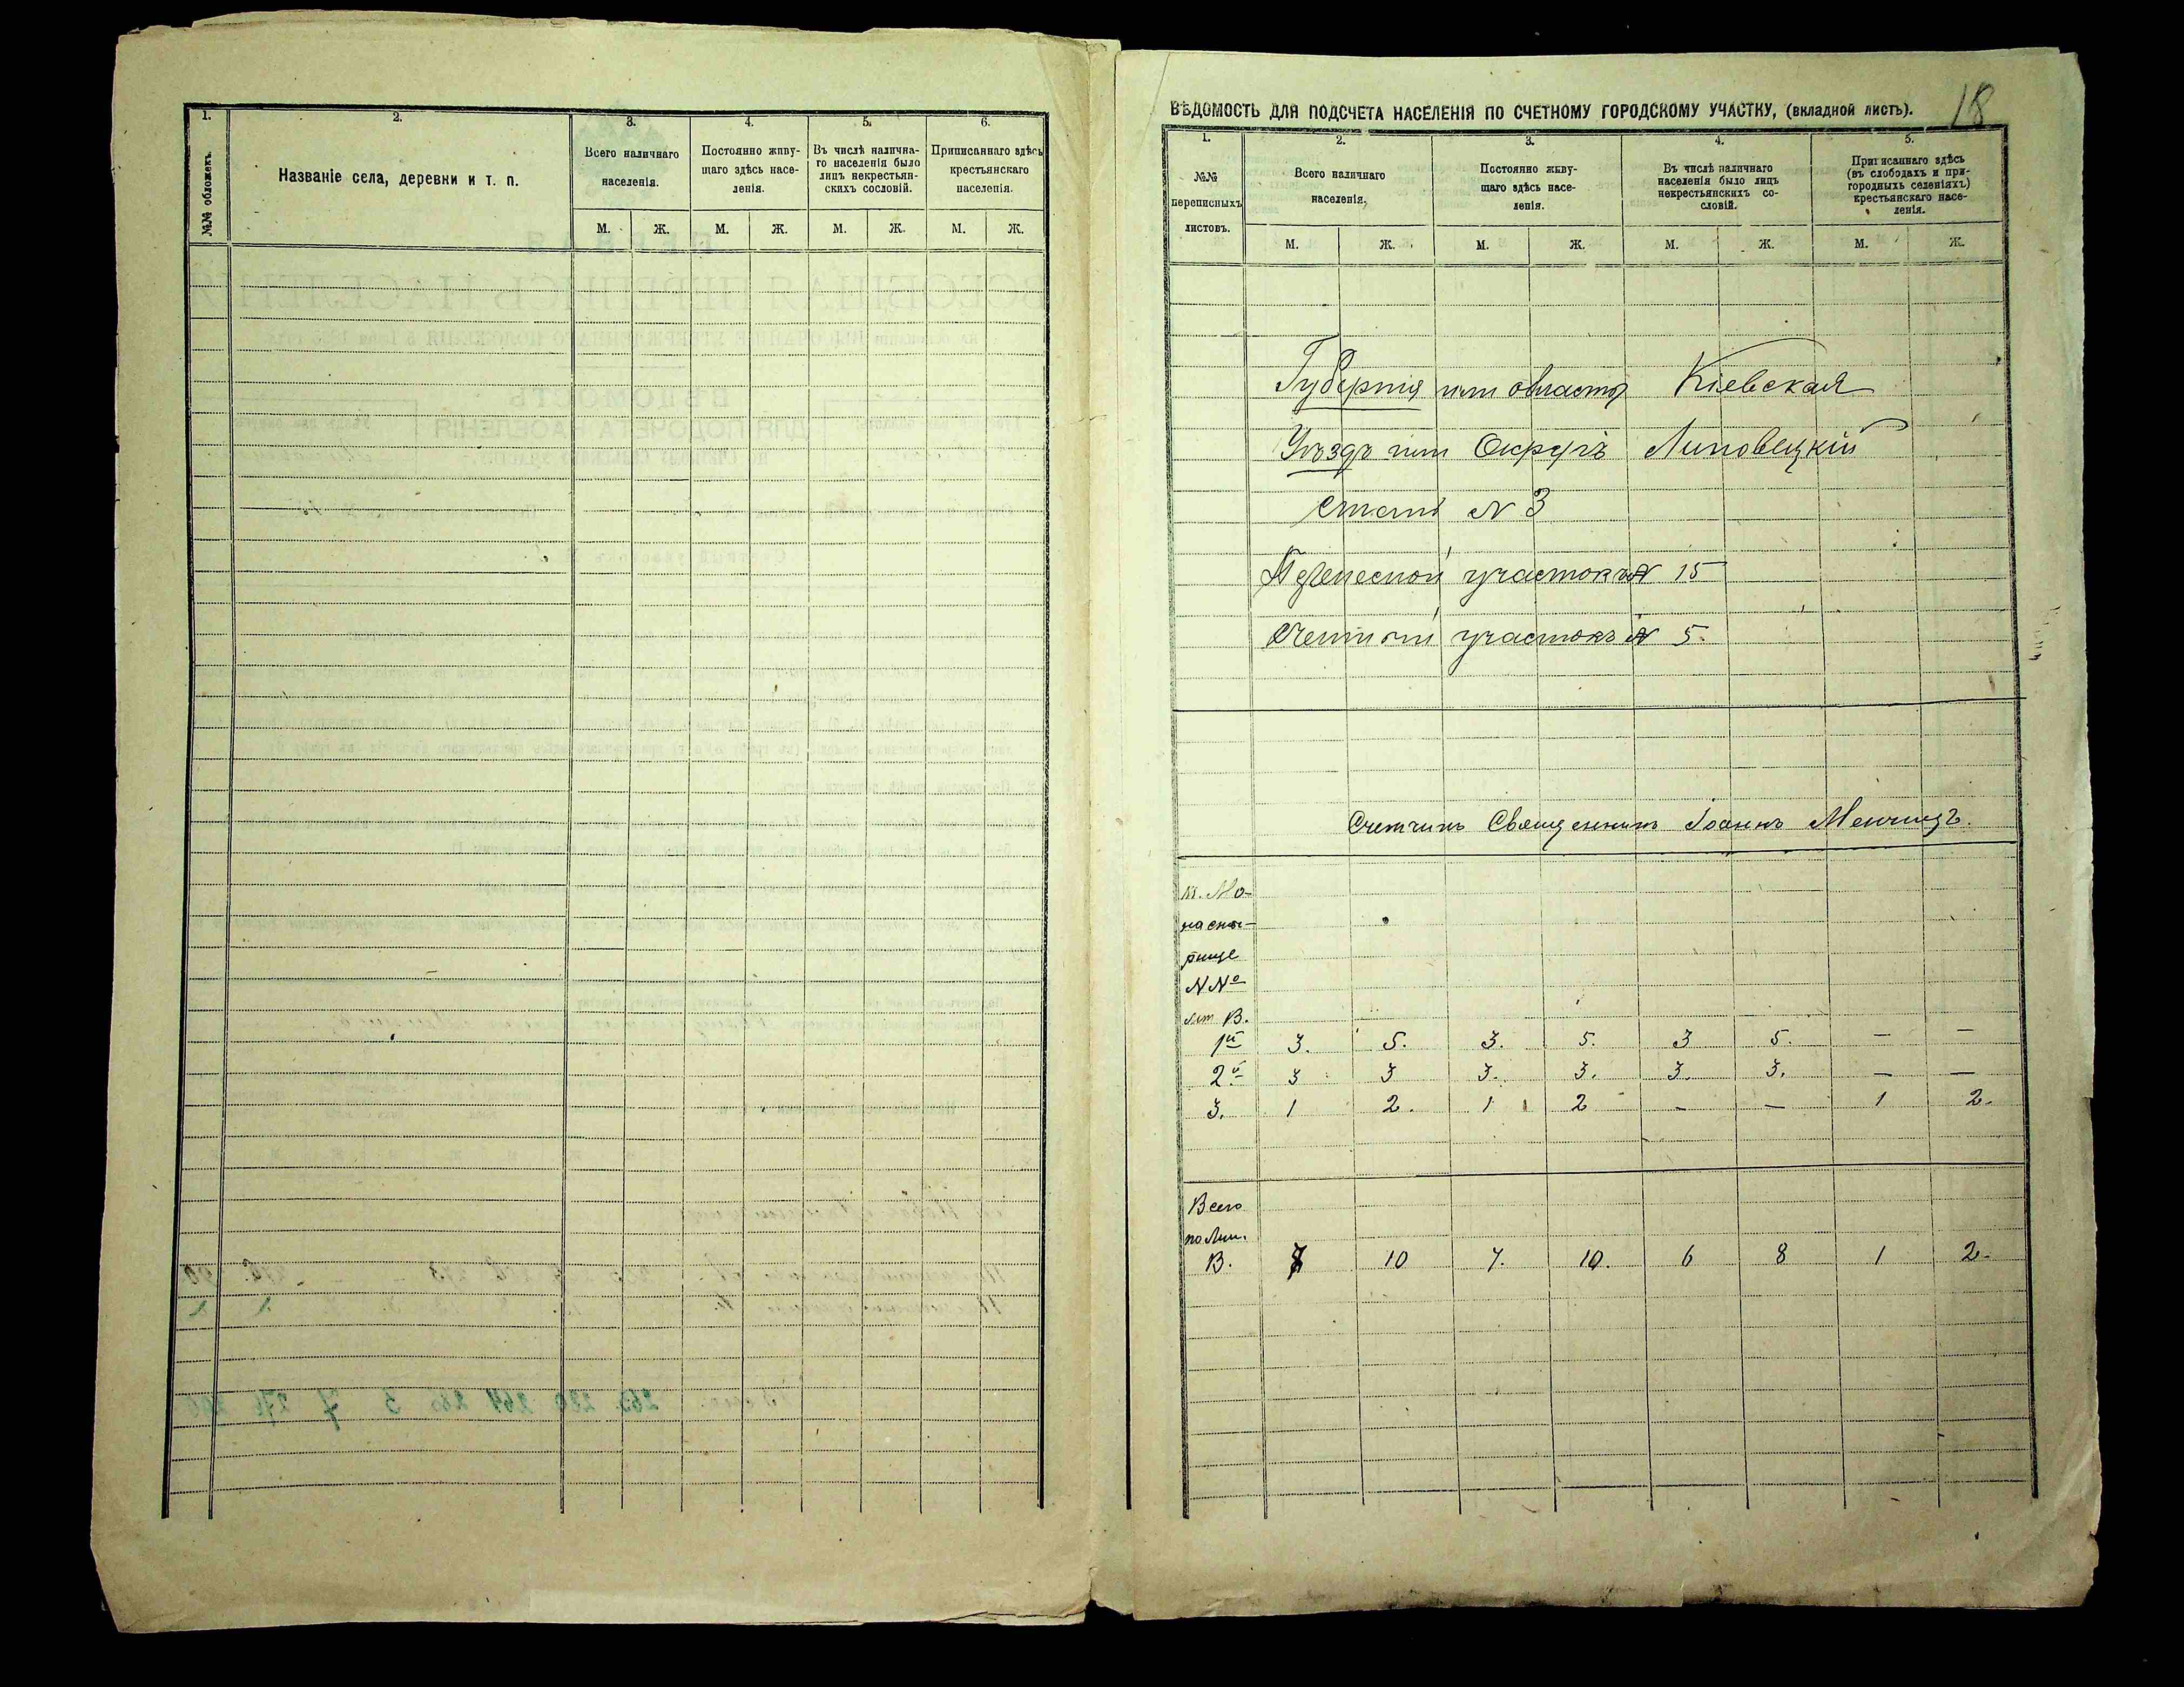 1.
2.
3.
4.
5.
6.
№№ обложекъ.
Названіе села, деревни и т. п.
Всего наличнаго
населенія.
Постоянно живу-
щаго здѣсь насе-
ленія.
Въ числѣ налична-
го населенія было
лицъ некрестьян-
скихъ сословій.
Приписаннаго здѣсь
крестьянскаго
населенія.
М. Ж. М. Ж. М. Ж. М. Ж.
18
ВѢДОМОСТЬ ДЛЯ ПОДСЧЕТА НАСЕЛЕНІЯ ПО СЧЕТНОМУ ГОРОДСКОМУ УЧАСТКУ, (вкладной листъ).
1.
2.
3.
4.
5.
№№
переписныхъ
листовъ.
Всего наличнаго
населенія.
Постоянно живу-
щаго здѣсь насе-
ленія.
Въ числѣ наличнаго
населенія было лицъ
некрестьянскихъ со-
словій.
Приписаннаго здѣсь
(въ слободахъ и при-
городныхъ селеніяхъ)
крестьянскаго насе-
ленія.
М. Ж. М. Ж. М. Ж. М. Ж.
Губернія или область Кіевская
Уѣздъ или Округъ Липовецкій
Станъ N 3
Переписной участокъ N 15
Счетный участокъ N 5.
Счетчикъ Священникъ Іоаннъ
м. Мо-
насты-
рище
N Nо
Лит В.
1й 3. 5. 3. 5. 3 5. — —
2й 3 3 3. 3. 3. 3. — —
3. 1 2. 1 2 — — 1 2.
Всего
по Лит.
В. 7 10 7. 10. 6 8 1 2.